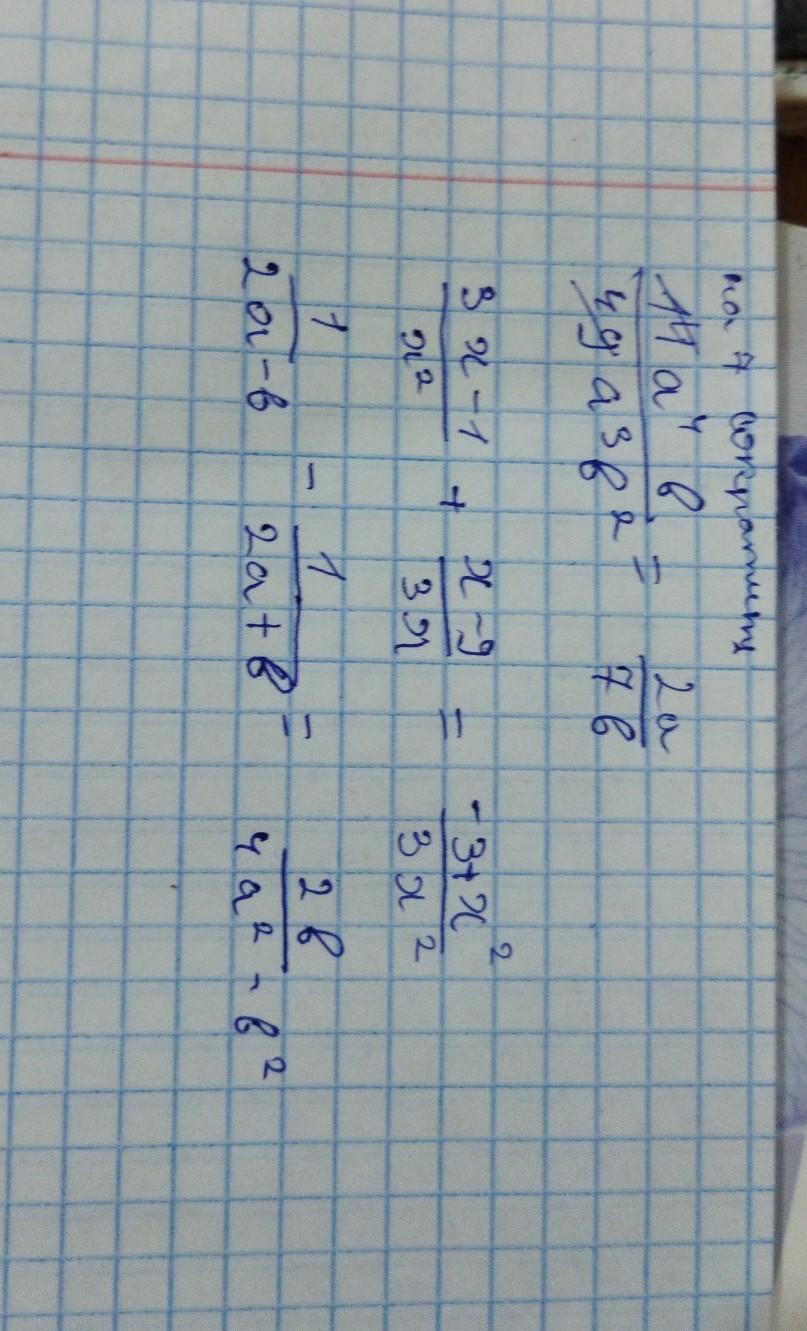 на 7 сократить
14a⁴b / 49a³b² = 2a / 7b
3x-1 / x² + x-9 / 3x = -3+x² / 3x²
1 / 2a-b - 1 / 2a+b = 2b / 4a²-b²